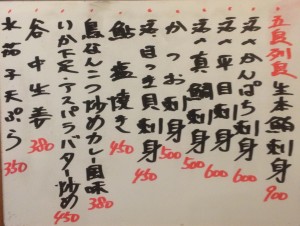 五島列島 生本鮪刺身 900
活〆かんぱち刺身 600
活〆平目刺身 600
活〆真鯛刺身 500
かつお刺身 500
活ほっき貝刺身 450
鮎塩焼き 450
鳥なんこつ炒めカレー風味 380
いか下足・アスパラバター炒め 450
谷中生姜 380
水茄子天ぷら 350